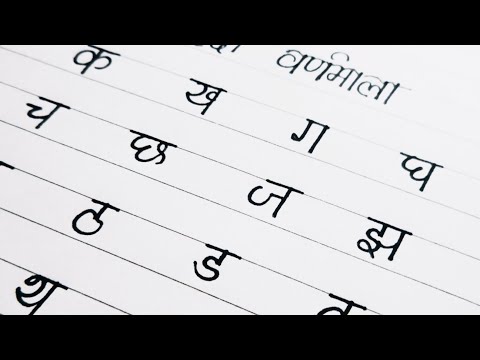 वर्णमाला
क ख ग घ
च छ ज झ
ठ ड
थ